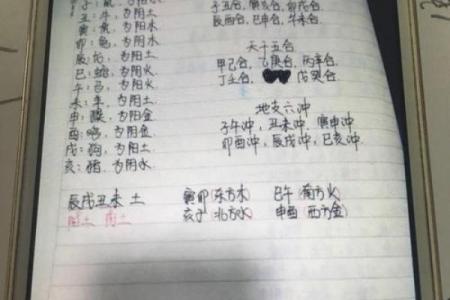 丑:牛, 为阴土.
寅:虎, 为阳木.
卯:兔, 为阴木.
辰:龙, 为阳土.
巳:蛇, 为阴火.
申:猴, 为阳金.
酉:鸡, 为阴金.
戌:狗, 为阳土.
亥:猪, 为阴水.
辰戌丑未 土
子丑合, 寅亥合, 卯戌合.
辰酉合, 巳申合, 午未合.
天干五合
甲己合, 乙庚合, 丙辛合.
丁壬合, 戊癸合.
地支六冲
子午冲, 丑未冲, 寅申冲
卯酉冲, 辰戌冲, 巳亥冲.
寅卯(东方木) 巳午(南方火)
亥子(北方水) 申酉(西方金)